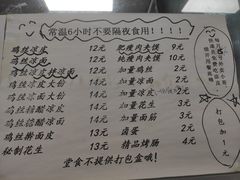 常温6小时不要隔夜食用!!!!
鸡丝凉皮 12元
鸡丝凉面 12元
鸡丝凉皮扶凉面 13元
鸡丝凉皮大份 14元
鸡丝凉面大份 14元
鸡丝醋凉皮 12元
鸡丝醋凉面 12元
鸡丝擀面皮 12元
秘制花生 13元
肥瘦肉夹馍 9元
纯瘦肉夹馍 10元
加量鸡丝 4元
加量凉面 2元
加量凉皮 2元
加量花生 3元
加量面筋 3元
卤蛋 2元
精品烤肠 4元
堂食不提供打包盒哦!
打包加1元